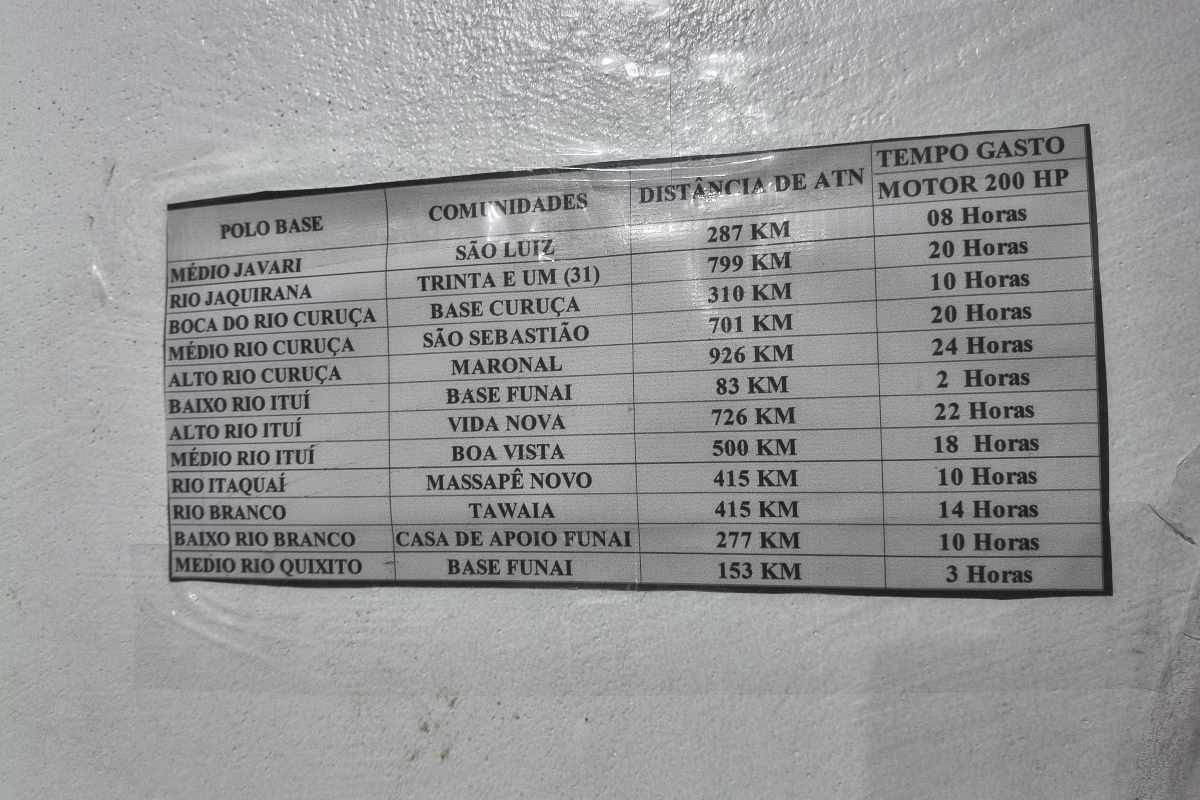 POLO BASE COMUNIDADES DISTÂNCIA DE ATN TEMPO GASTO MOTOR 200 HP
MÉDIO JAVARI SÃO LUIZ 287 KM 08 Horas
RIO JAQUIRANA TRINTA E UM (31) 799 KM 20 Horas
BOCA DO RIO CURUÇA BASE CURUÇA 310 KM 10 Horas
MÉDIO RIO CURUÇA SÃO SEBASTIÃO 701 KM 20 Horas
ALTO RIO CURUÇA MARONAL 926 KM 24 Horas
BAIXO RIO ITUÍ BASE FUNAI 83 KM 2 Horas
ALTO RIO ITUÍ VIDA NOVA 726 KM 22 Horas
MÉDIO RIO ITUÍ BOA VISTA 500 KM 18 Horas
RIO ITAQUAÍ MASSAPÊ NOVO 415 KM 10 Horas
RIO BRANCO TAWAIA 415 KM 14 Horas
BAIXO RIO BRANCO CASA DE APOIO FUNAI 277 KM 10 Horas
MEDIO RIO QUIXITO BASE FUNAI 153 KM 3 Horas